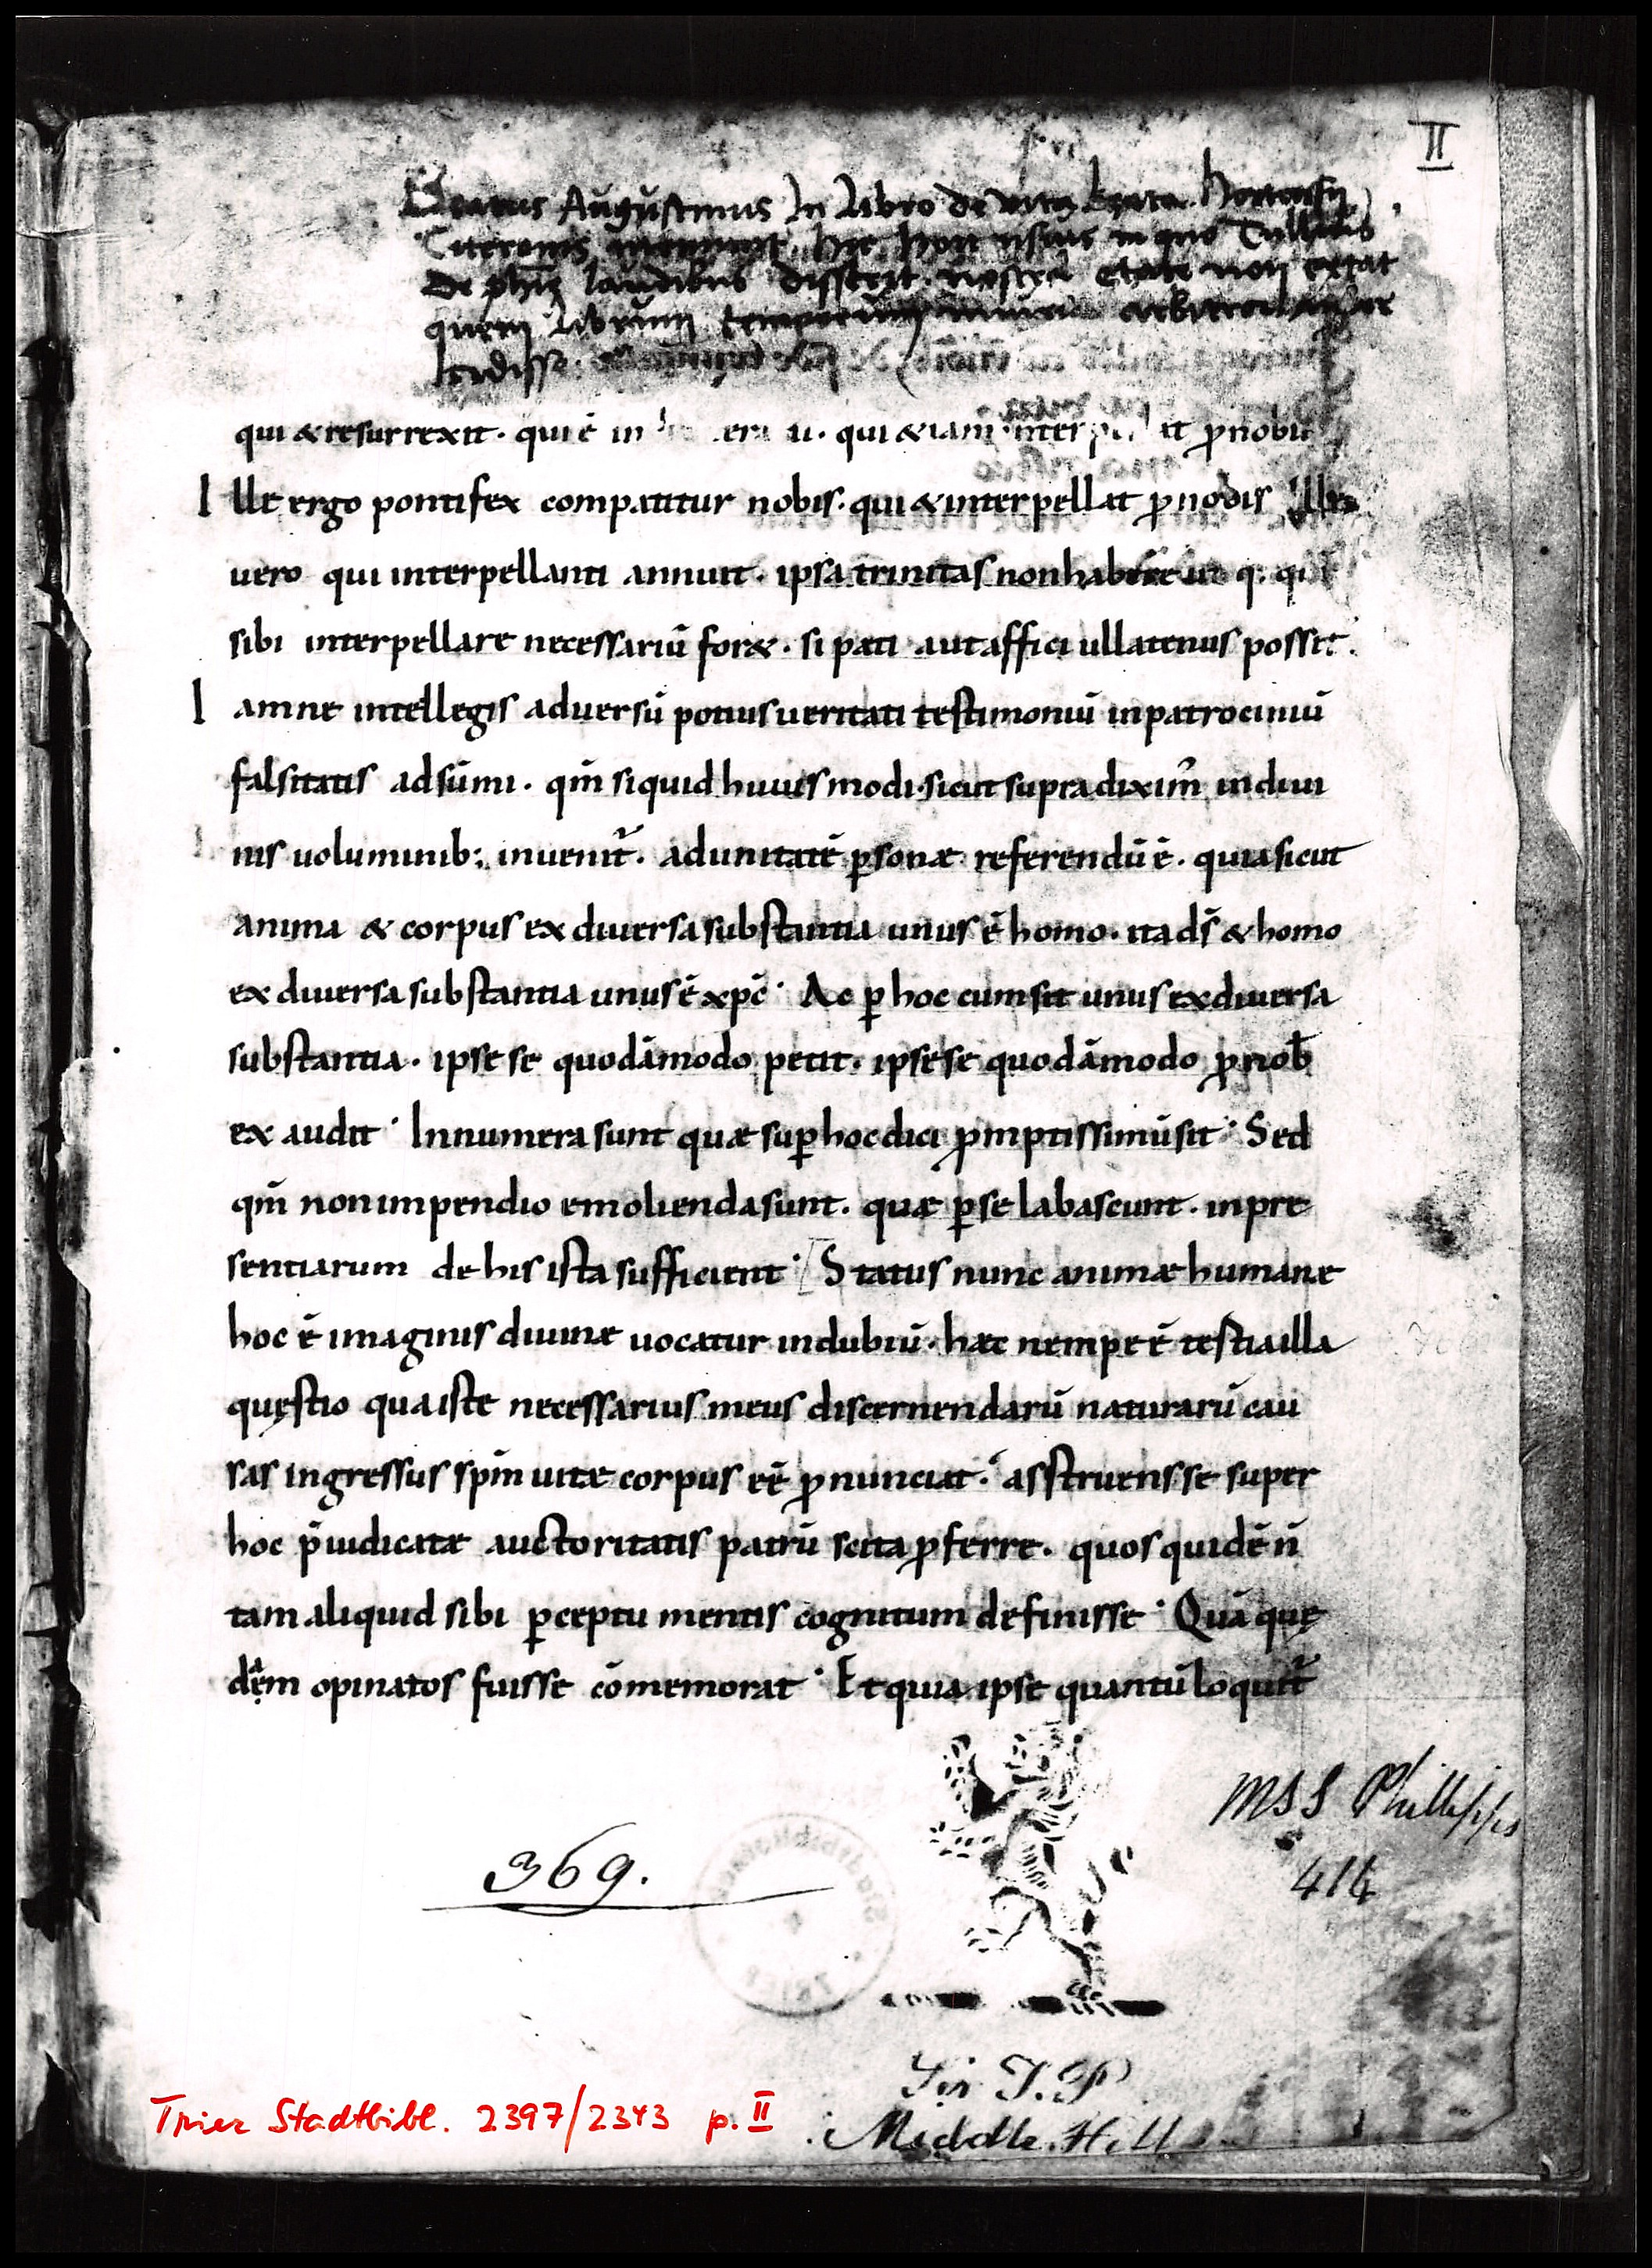 II
Beatus Augustinus In libro de vita beata. Hortensii
Ciceronis meminit. hic hortensius in quo Tullius
De phīe laudibus disserit. nostra etate non extat
quem librum temporum iniuria arbitror
cidisse.
qui & resurrexit · qui ē in  · qui & iam inter it ꝓnobis
Ille ergo pontifex compatitur nobis · qui & interpellat ꝓnobis Ille
uero qui interpellanti annuit · ipsa trinitas non habere q:
sibi interpellare necessariū for& · si pati aut affici ullatenus possit·
Iamne intellegis aduersū potius ueritati testimoniū inpatrociniū
falsitatis adsūmi · qm̄ siquid huiusmodi · sicut supra diximꝰ indiui
nis uoluminib: inuenit̃ · adunitatē ꝑsonæ referendū ē · quia sicut
anima & corpus ex diuersa substantia unus ē homo · ita ds̄ & homo
ex diuersa substantia unus ē xp̄c · Ac ꝑ hoc cum sit unus exdiuersa
substantia · ipse se quodāmodo petit · ipse se quodāmodo ꝓnob̄
ex audit · Innumera sunt quæ suꝑhoc dici ꝓmptissimū sit · Sed
qm̄ non impendio emolienda sunt · quæ ꝑse labascunt · inpre
sentiarum de his ista sufficient · Status nunc animæ humanæ
hoc ē imaginis diuinæ uocatur indubiū · hæc nempe ē testia illa
quęstio qua iste necessarius meus discernendarū naturarū cau
sas ingressus spm̄ uitæ corpus eē ꝓnunciat · asstruens se super
hoc p̄iudicatæ auctoritatis patrū scita ꝓferre · quos quidē n̄
tam aliquid sibi ꝑceptu mentis cognitum definisse · Quā quę
dem opinatos fuisse cōmemorat · Et quia ipse quantū loquit̃
MSS Phillipps
414
369.
TRIER
Sir T.P
Middle Hill
Trier Stadtbibl. 2397/2343 p. II